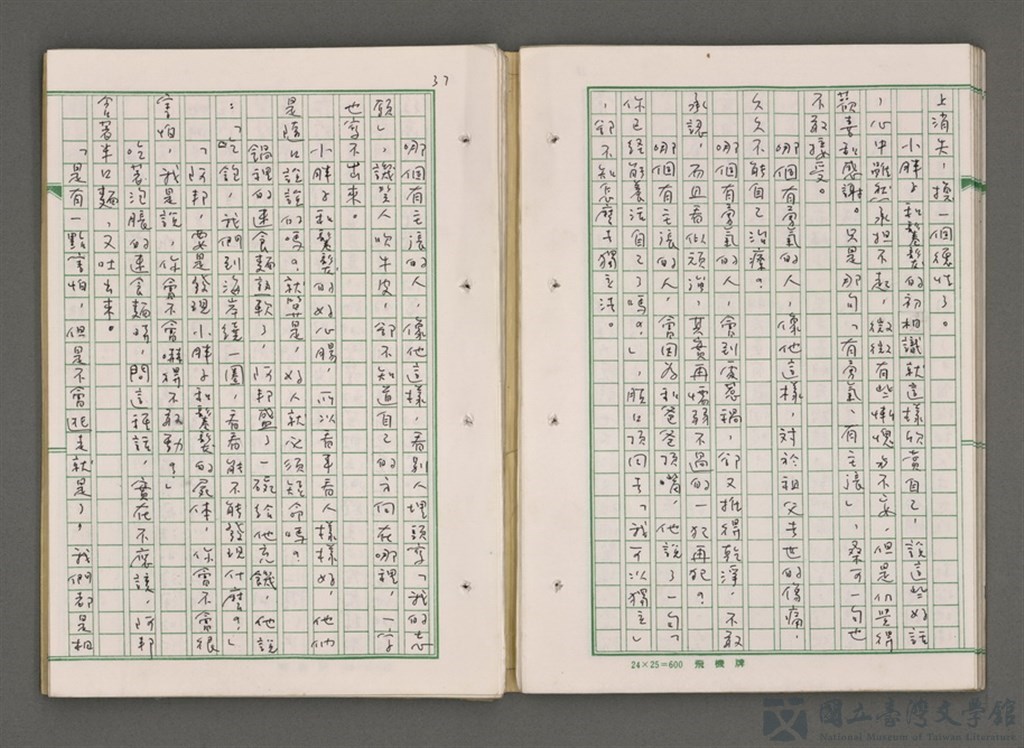 上消失，換一個德性了。
小胖子和鬈鬈的初相識就這樣欣賞自己，說這些好話
，心中雖然承担不起，微微有些慚愧，但是仍覺得
歡喜和感謝。只是那句「有勇氣、有主張」，桑可一句也
不敢接受。
哪個有勇氣的人，像他這樣，対於祖父去世的傷痛，
久久不能自己治療？
哪個有勇氣的人，會到處惹禍，卻又推得乾淨，不敢
承認，而且看似頑強，其實再懦弱不過的一犯再犯？
哪個有主張的人，會因為和爸爸頂嘴，他說了一句「
你已経能養活自己了嗎？」，順口頂回去「我可以獨立」
，卻不知怎麼去獨立活。
24×25=600 飛機牌
37
哪個有主張的人，像他這樣，看別人埋頭寫「我的志
願」，譏笑人吹牛皮，卻不知道自己的方向在哪裡，一字
也寫不出來。
小胖子和鬈鬈的好心腸，所以看事看人樣樣好，他們
是隨口說說的嗎？就算是，好人就必須短命嗎？
鍋裡的速食麵熟軟了，阿邦盛了一碗給他充饑，他說
：「吃飽，我們到海岸繞一圈，看看能不能發現什麼？」
「阿邦，要是發現小胖子和鬈鬈的屍体，你會不會很
害怕，我是說，你會不會嚇得不敢動？」
吃著泡脹的速食麵時，問這種話，實在不應該，阿邦
含著半口麵，又吐出來。
「是有一點害怕，但是不會逃走就是了，我們都是相
國立臺灣文學館
National Museum of Taiwan Literature